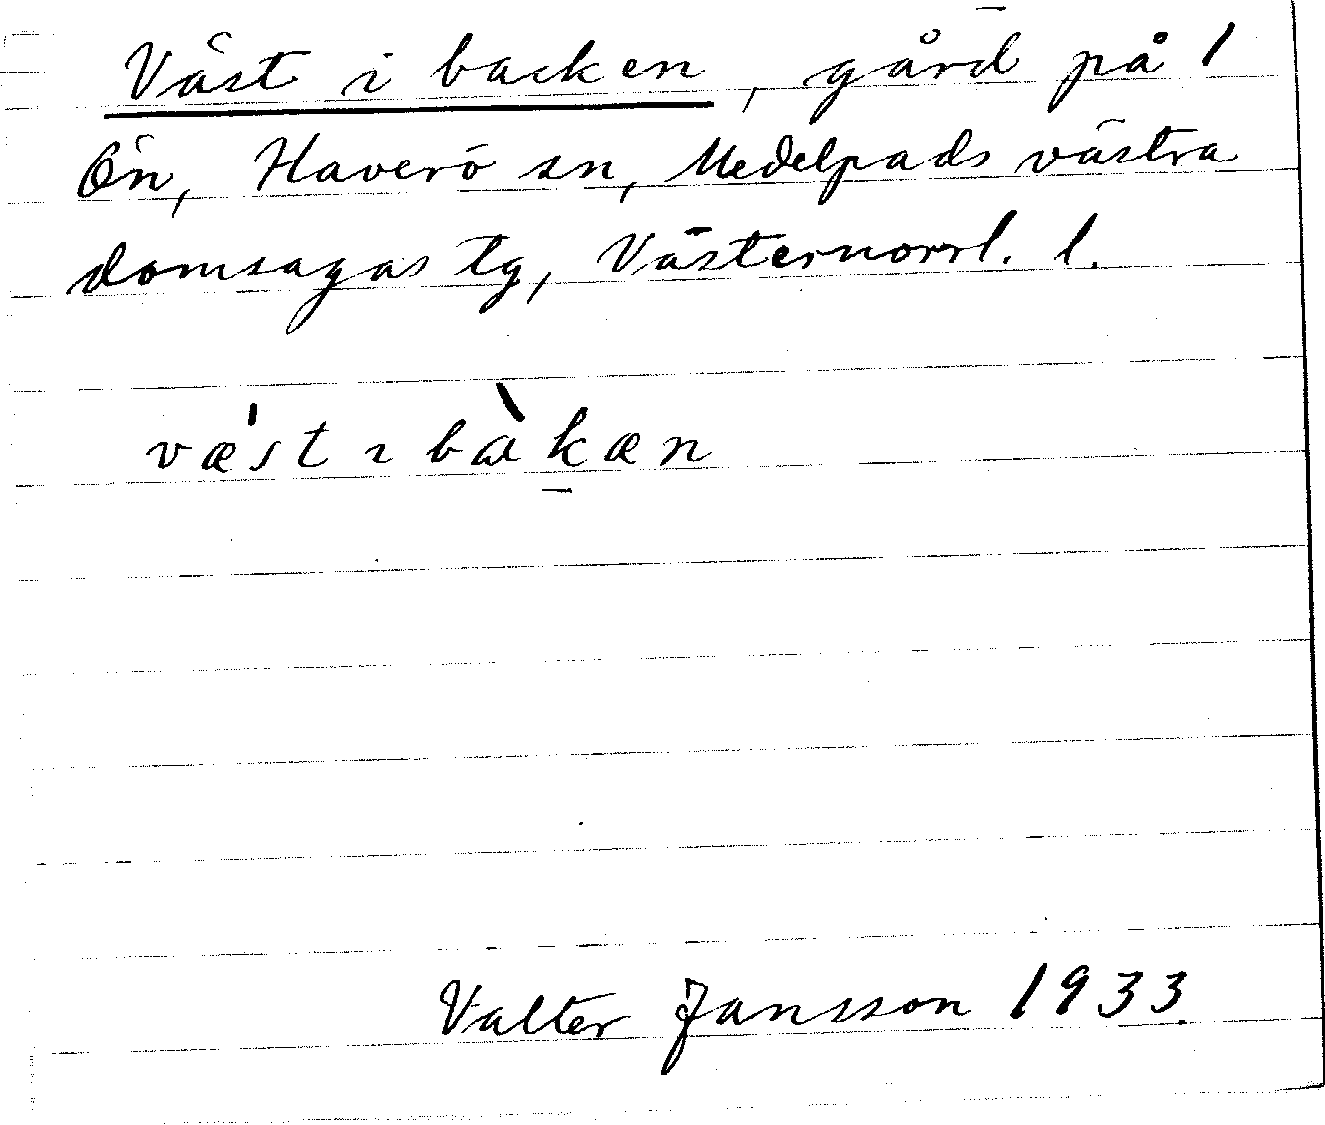 Väst i backen, gård på 1
Ön, Haverö sn, Medelpads västra
domsagas tg, Västernorrl. l.
væ'st ɩ bàkæn
Valter Jansson 1933